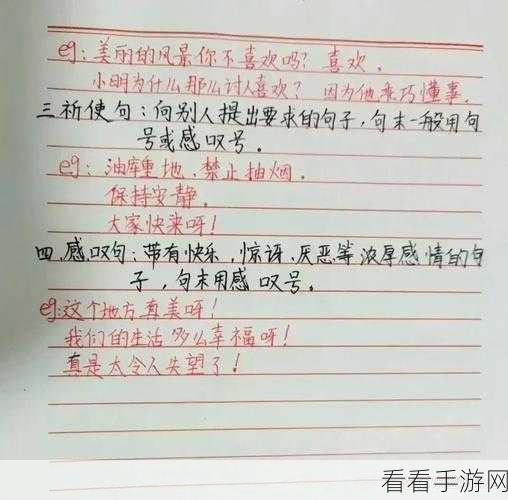 eg: 美丽的风景你不喜欢吗? 喜欢。
小明为什么那么讨人喜欢? 因为他乖巧懂事。
三祈使句:向别人提出要求的句子,句末一般用句
号或感叹号。
eg: 油罐重地,禁止抽烟。
保持安静。
大家快来呀!
四.感叹句:带有快乐,惊讶,厌恶等浓厚感情的句
子,句末用感叹号。
eg:这个地方真美呀!
我们的生活多么幸福呀!
真是太令人失望了!
看看手游网